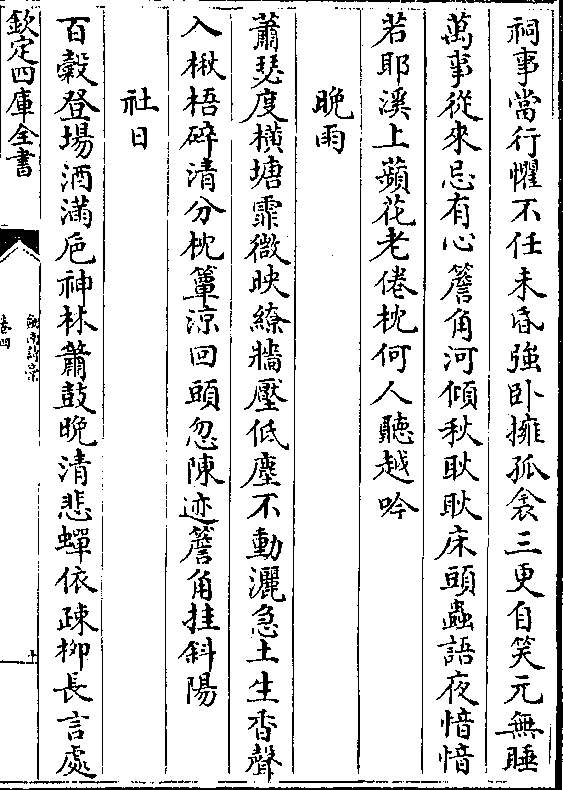 祠事當行懼不任未昏強卧擁孤衾三更自笑元無睡
萬事從來忌有心簷角河傾秋耿耿床頭蟲語夜愔愔
若耶溪上蘋花老倦枕何人聽越吟
晚雨
蕭瑟度橫塘霏微映繚牆壓低塵不動灑急土生香聲
入楸梧碎清分枕簟涼回頭忽陳迹簷角挂斜陽
社日
百穀登場酒滿巵神林簫鼓晚清悲蟬依疎柳長言處
欽定四庫全書
劍南詩稾
卷四